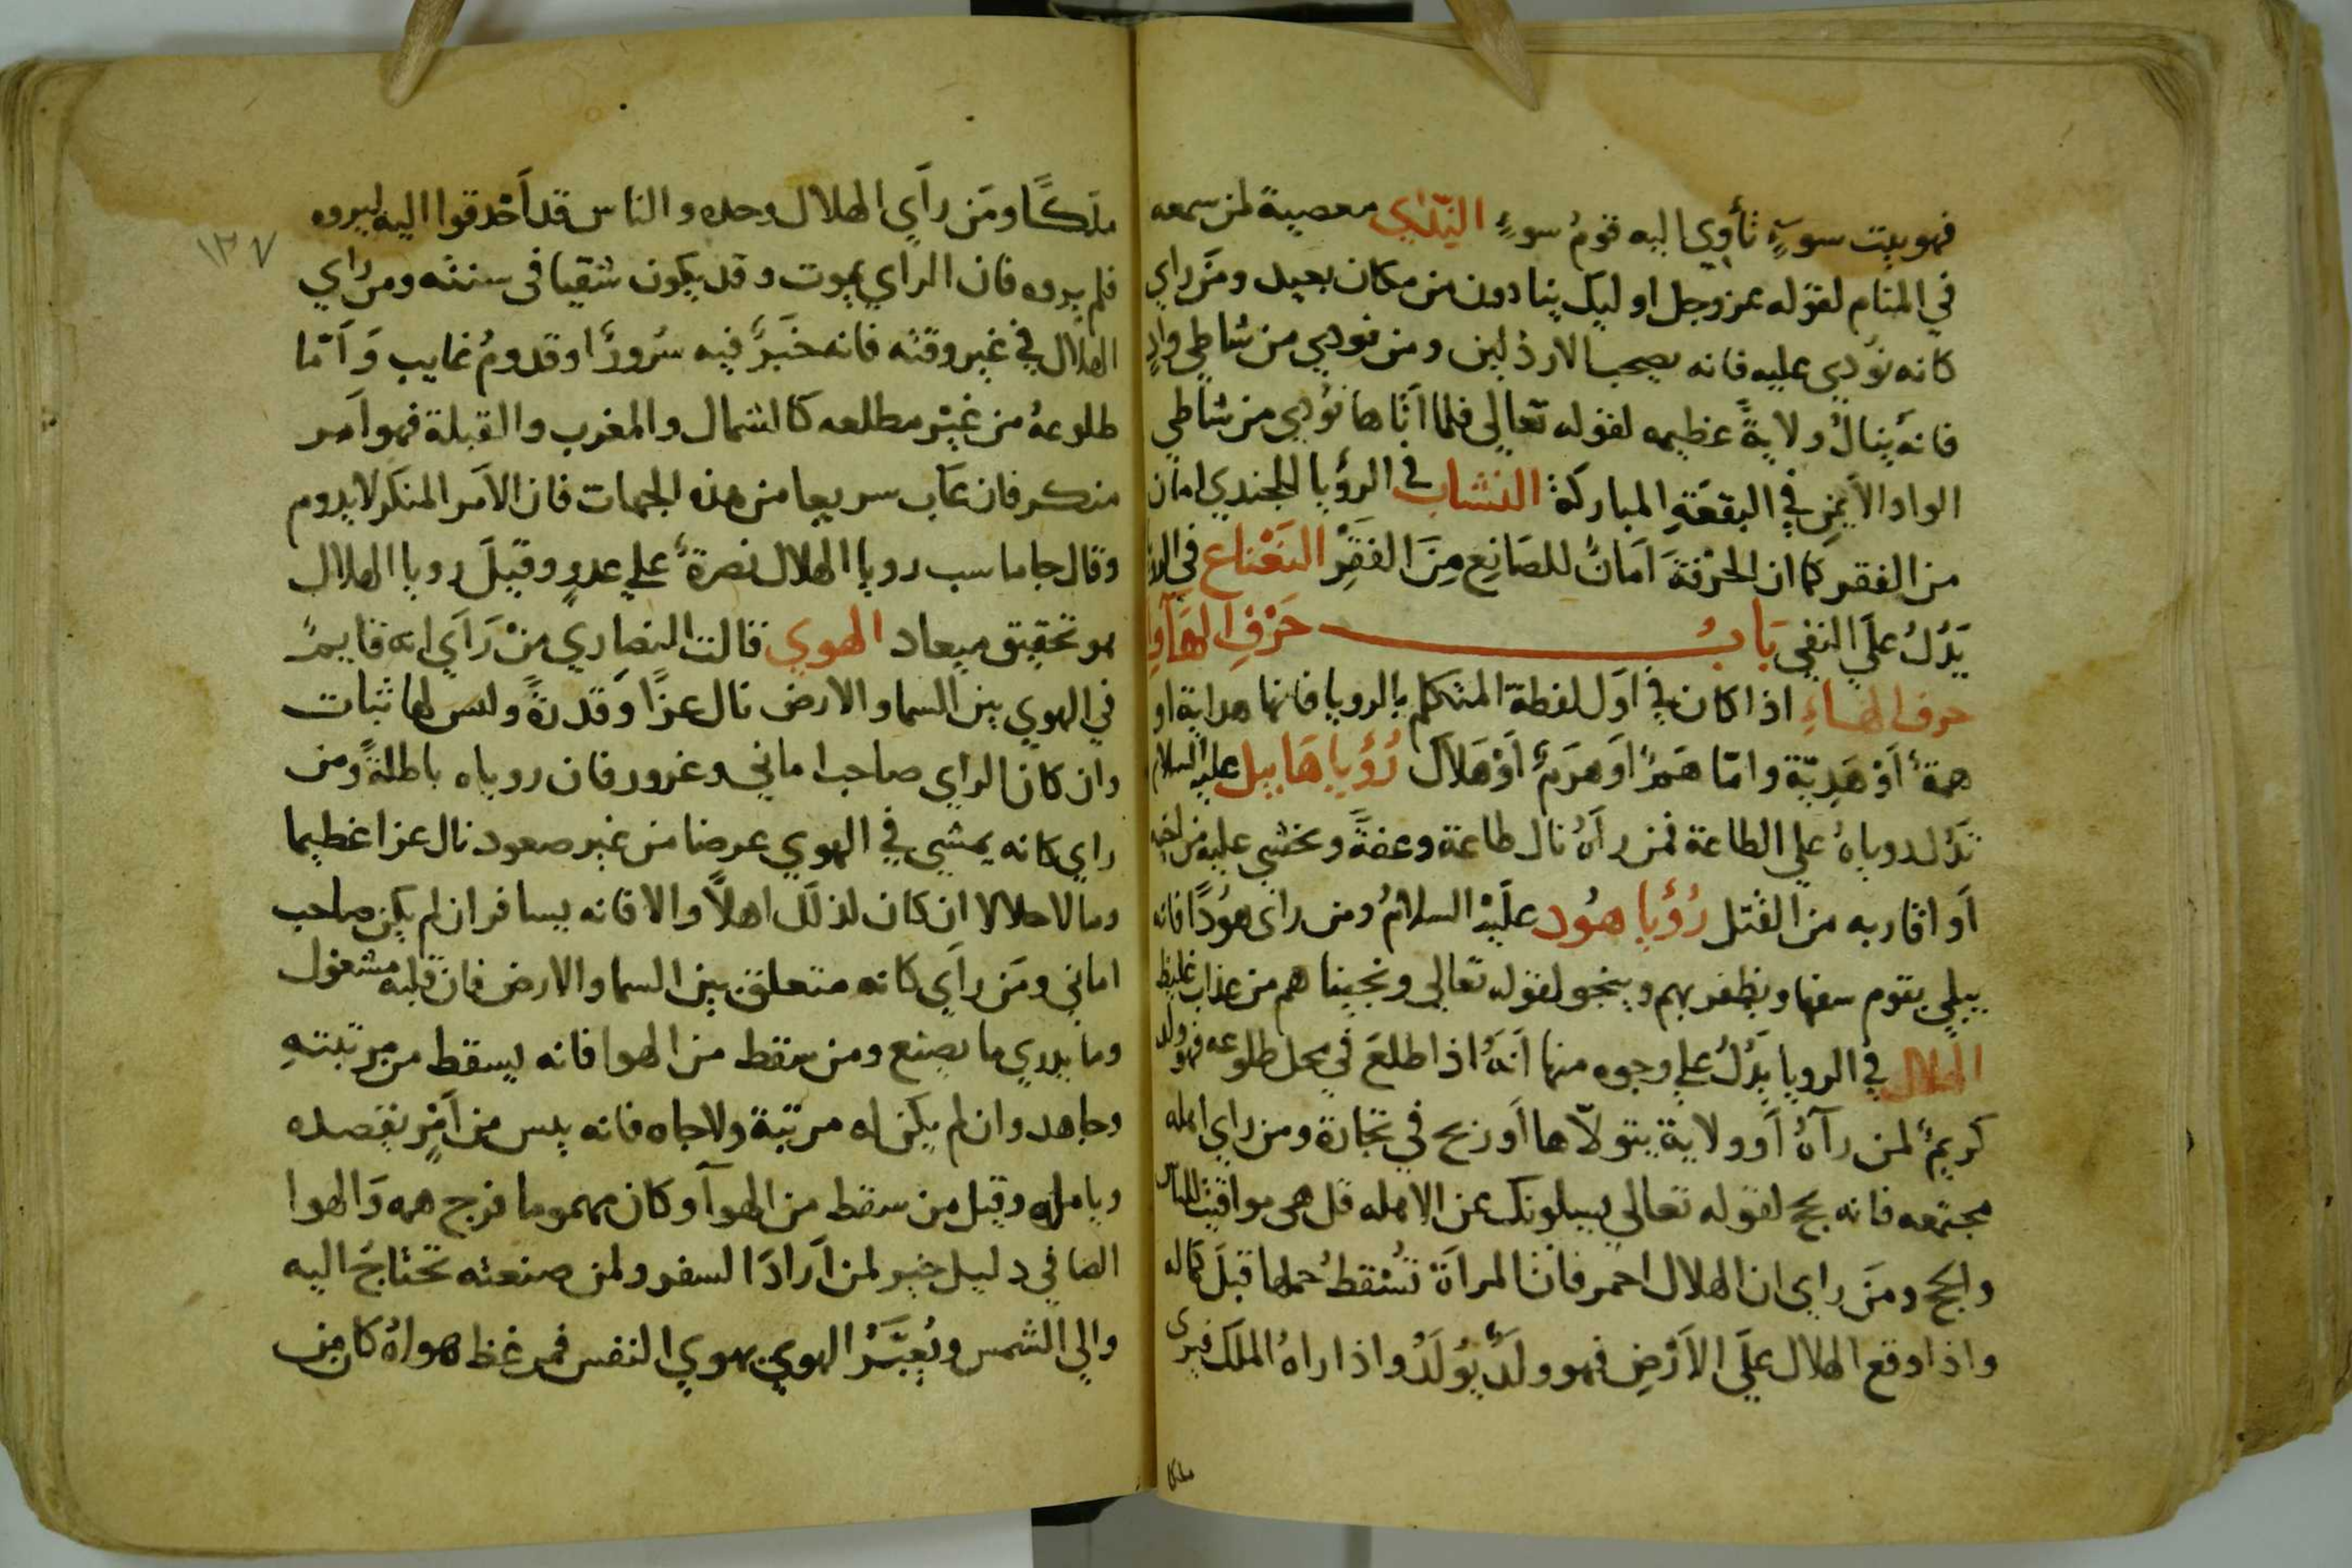 فهو بيت سوءٍ تأوي اليه قومُ سوءٍ النِّدَاي معصية لمن سمعه
في المنام لقوله عز وجل اوليك ينادون من مكان بعيد ومَن راي
كانه نُودِي عليه فانه يصحب الارذلين ومن نودي من شاطي وادٍ
فانهُ ينالُ ولايةً عظيمه لقوله تعالي فلما اتاها نُودِي من شاطي
الواد الأيمنِ في البقعَةِ المباركة النشاب في الرؤيا للجندي امان
من الفقر كما ان الحرْفةَ اَمَانٌ للصَانِعِ مِنَ الفَقْرِ النَعْناع في
يَدُلُ علَي النفي بَابُ حَرْفِ الهَآءِ
حرف الهاءِ اذا كان في اَول لفظة المتكلم بالرويا فانها هداية او
همةٌ اَوْ هَدِيّة وامّا هَمٌ اَو هَرَمٌ اَوْ هَلَاَك رُؤيا هَابيل عليه السلام
تَدُل روياهُ علي الطاعة فمن رآهُ نال طاعة وعفةً ويخشي عليه من اخيه
اَو اقاربه من القتل رُؤيا هُود علَيْه السلامُ ومن راى هُودًا فانه
يبلي بقوم سفها ويظفر بهم وينجو لقوله تعالي ونجيناهم من عذاب غليظ
الهلال في الرويا يَدُلُ علي وجوه منها اَنهُ اذا طلعَ في محل طلوعه فهو ولد
كريمٌ لمن رآهُ اَو ولاية يتولّاها اَو ربح في تجارة ومن راي اهله
مجتمعه فانه يحج لقوله تعالي يسيلونك عن الاهله قل هى مواقيت للناس
والحج ومَن راي ان الهلال احمر فانّ المراَة تُسْقطُ حملها قبلَ كماله
واذا وقع الهلال علَي الاَرْضِ فهو ولَدٌ يُولَدُ واذا راهُ الملك فيرى
ملكا
ملَكًا ومَن راَي الهلال وحده والناس قد اَحْدقوا اليه ليروه
فلم يروه فان الراي يموت وقد يكون شقيا فى سنته ومن راي
الهلال في غير وقته فانه خَبَرٌ فيه سُرورٌ او قدومُ غايب وَاَمّا
طلوعهُ من غيْر مطلعه كالشمال والمغرب والقبلة فهو اَمر
منكر فان غَاب سريعا من هذه الجهات فان الاَمر المنكر لا يدوم
وقال جاماسب رويا الهلال نصرةٌ علي عدوٍ وقيلَ رويا الهلال
هو تحقيق ميعاد الهوي قالت النصاري مَنْ رَاَي انه قايمٌ
في الهوي بين السما والارض نال عزًا وقدرةً ولس لها ثبات
وان كان الراي صاحب اماني وغرور فان روياه باطلةً ومن
راي كانه يمشي في الهوي عرضا من غير صعود نال عزا عظيما
ومالا حلالا ان كان لذلَك اهلاً والا فانه يسافر ان لم يكن صاحب
اماني ومَن راَي كانه متعلق بين السما والارض فان قلبه مشغول
وما يدري ما يصنع ومن سقط من الهوا فانه يسقط من مرتبتهِ
وجاهه وان لم يكن له مرتبة ولا جاه فانه يس من اَمْرٍ يقصده
ويامله وقيل من سقط من الهوآ وكان مهموما فرج همه وَالهوا
الصافي دليل خير لمن اَرادَ السفر ولمن صنعته تحتاجُ اليه
والي الشمس ويُعبَّرُ الهوي بهوي النفس فمن غظ هواهُ كان من
١٣٧